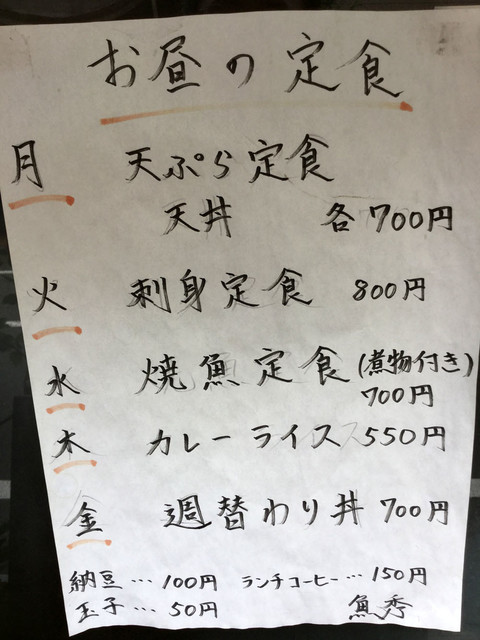 お昼の定食
月 天ぷら定食
天丼 各700円
火 刺身定食 800円
水 焼魚定食(煮物付き)
700円
木 カレーライス 550円
金 週替わり丼 700円
納豆…100円 ランチコーヒー…150円
玉子…50円 魚秀